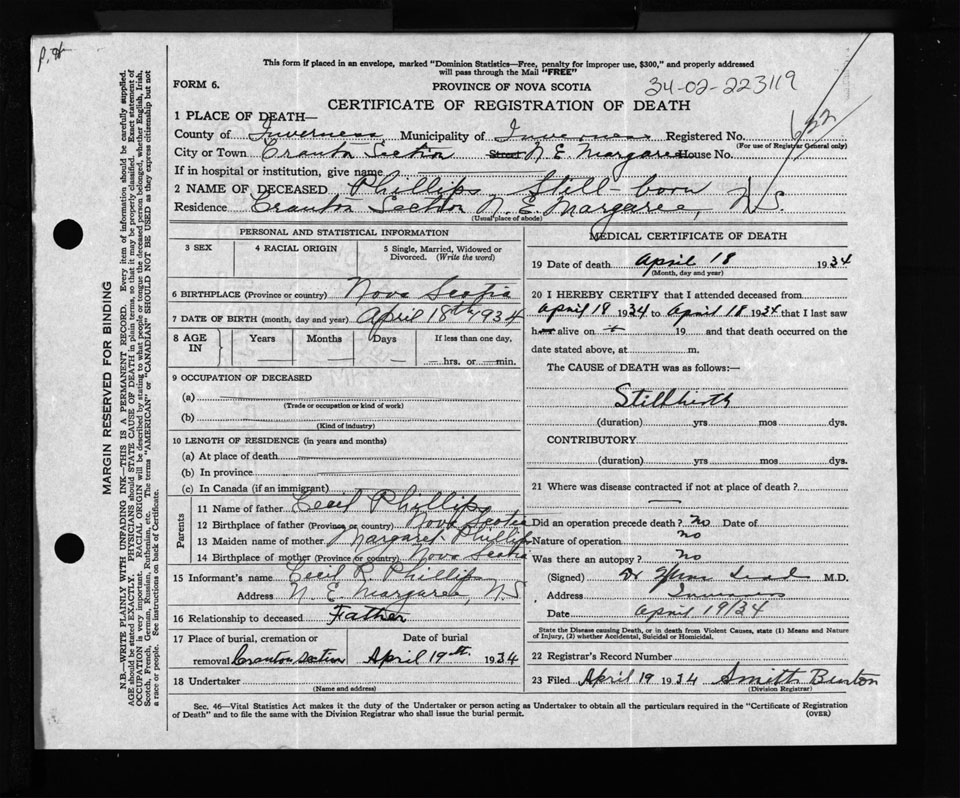 P. H
This form if placed in an envelope, marked "Dominion Statistics—Free, penalty for improper use, $300," and properly addressed
will pass through the Mail "FREE"
FORM 6.
PROVINCE OF NOVA SCOTIA
34-02-223119
CERTIFICATE OF REGISTRATION OF DEATH
1 PLACE OF DEATH—
County of Inverness Municipality of Inverness Registered No.
(For use of Registrar General only)
City or Town Cranton Section Street N. E. Margaree House No.
If in hospital or institution, give name
2 NAME OF DECEASED Phillips Still-born
Residence Cranton Section N. E. Margaree, N.S.
(Usual place of abode)
PERSONAL AND STATISTICAL INFORMATION
3 SEX 4 RACIAL ORIGIN 5 Single, Married, Widowed or
Divorced. (Write the word)
6 BIRTHPLACE (Province or country) Nova Scotia
7 DATE OF BIRTH (month, day and year) April 18th 1934
8 AGE IN Years Months Days If less than one day,
hrs. or min.
9 OCCUPATION OF DECEASED
(a)
(Trade or occupation or kind of work)
(b)
(Kind of industry)
10 LENGTH OF RESIDENCE (in years and months)
(a) At place of death
(b) In province
(c) In Canada (if an immigrant)
Parents
11 Name of father Cecil Phillips
12 Birthplace of father (Province or country) Nova Scotia
13 Maiden name of mother Margaret Phillips
14 Birthplace of mother (Province or country) Nova Scotia
15 Informant's name Cecil R. Phillips
Address N. E. Margaree, N S
16 Relationship to deceased Father
17 Place of burial, cremation or Date of burial
removal Cranton Section April 19th. 1934
18 Undertaker
(Name and address)
MEDICAL CERTIFICATE OF DEATH
19 Date of death April 18 1934
(Month, day and year)
20 I HEREBY CERTIFY that I attended deceased from
April 18 1934 to April 18 1934 that I last saw
h alive on 19 and that death occurred on the
date stated above, at m.
The CAUSE of DEATH was as follows:—
Stillbirth
(duration) yrs mos dys.
CONTRIBUTORY
(duration) yrs mos dys.
21 Where was disease contracted if not at place of death?
Did an operation precede death? No Date of
Nature of operation no
Was there an autopsy? No
(Signed) Dr M.D.
Address Inverness
Date April 19/34
State the Disease causing Death, or in death from Violent Causes, state (1) Means and Nature
of Injury, (2) whether Accidental, Suicidal or Homicidal.
22 Registrar's Record Number
23 Filed April 19 1934 Smith Burton
(Division Registrar)
Sec. 46—Vital Statistics Act makes it the duty of the Undertaker or person acting as Undertaker to obtain all the particulars required in the "Certificate of Registration
of Death" and to file the same with the Division Registrar who shall issue the burial permit.
(OVER)
MARGIN RESERVED FOR BINDING
N.B.—WRITE PLAINLY WITH UNFADING INK—THIS IS A PERMANENT RECORD. Every item of information should be carefully supplied.
AGE should be stated EXACTLY. PHYSICIANS should STATE CAUSE OF DEATH in plain terms, so that it may be properly classified. Exact statement of
OCCUPATION is very important. RACIAL ORIGIN will be described by stating to what people or tongue the deceased person belonged, whether English, Irish,
Scotch, French, German, Russian, Ruthenian, etc. The terms "AMERICAN" or "CANADIAN" SHOULD NOT BE USED as they express citizenship but not
a race or people. See instructions on back of Certificate.